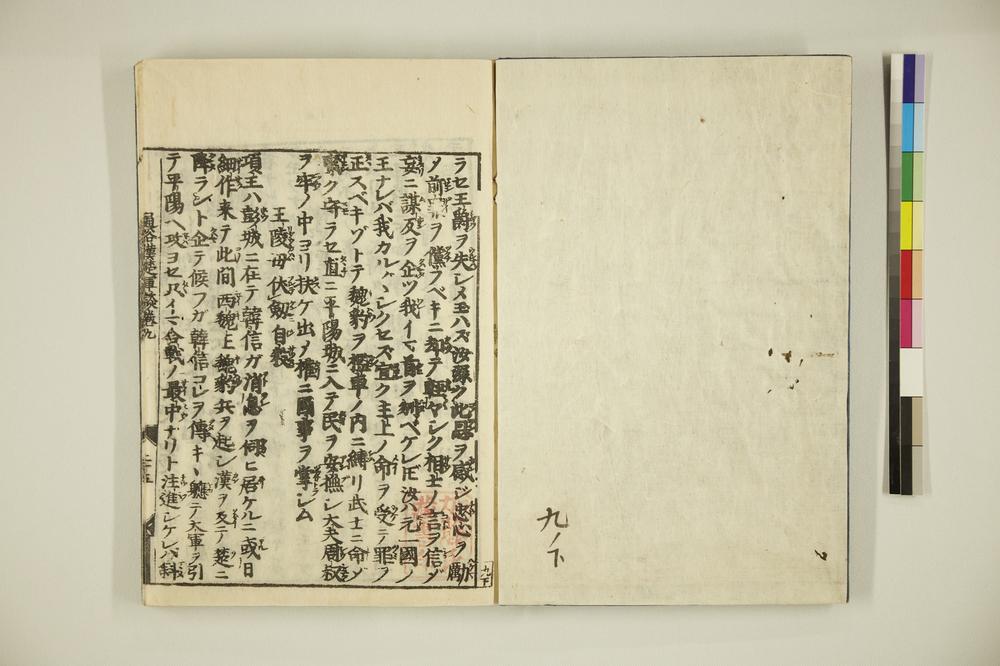 九ノ下
ラセ王爵ヲ失シメ玉ハズ汝深ク此恩ヲ感ジ忠心ヲ勵
メ前罪ヲ償フベキニ却テ輕ヤシク相士ノ言ヲ信ジ
妄ニ謀反ヲ企ツ我イマ首ヲ刎ベケレ𪜈汝ハ元一國ノ
王ナレバ我カル〲シクセズ宜ク主上ノ命ヲ受テ罪ヲ
正スベキゾトテ魏豹ヲ檻車ノ内ニ縛リ武士ニ命ジ
緊ク守ラセ直ニ平陽城ニ入テ民ヲ安撫シ大夫周叔
ヲ牢ノ中ヨリ扶ケ出メ權ニ國事ヲ掌シム
王陵母伏劔自殺
項王ハ彭城ニ在テ韓信ガ消息ヲ伺ヒ居ケルニ或日
細作来テ此間西魏王魏豹兵ヲ起シ漢ヲ反テ楚ニ
降ラント企テ候フガ韓信コレヲ傳キヽ聽テ大軍ヲ引
テ平陽ヘ攻ヨセ只イマ合戰ノ最中ナリト注進シケレバ
通俗漢楚軍談卷九
二十五
九下